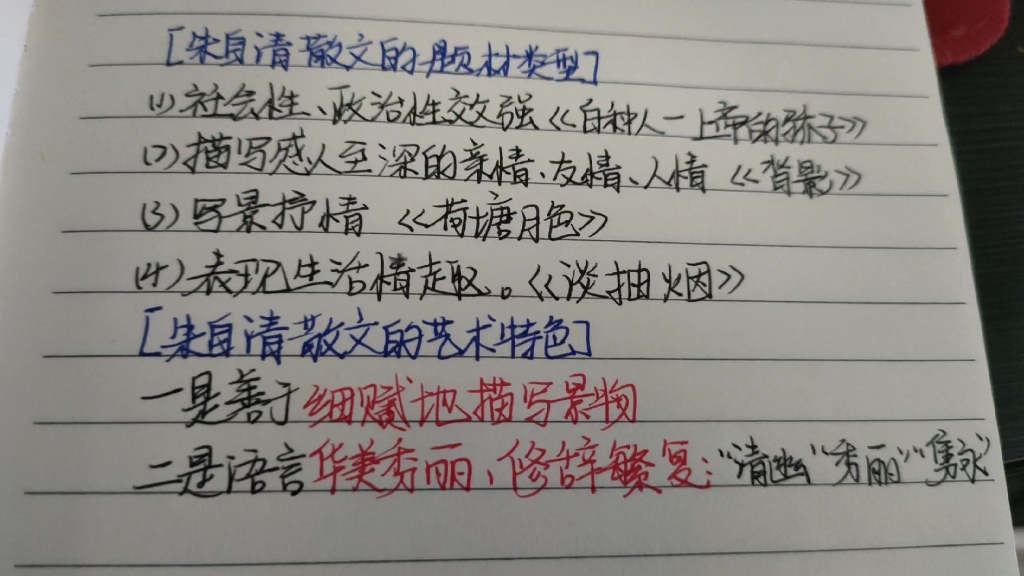 [朱自清散文的题材类型]
(1)社会性、政治性效强《白种人一上帝的骄子》
(2)描写感人至深的亲情、友情、人情《背影》
(3)写景抒情《荷塘月色》
(4)表现生活情趣。《淡抽烟》
[朱自清散文的艺术特色]
一是善于细腻地描写景物
二是语言华美秀丽、修辞繁复;"清幽""秀丽""隽永"